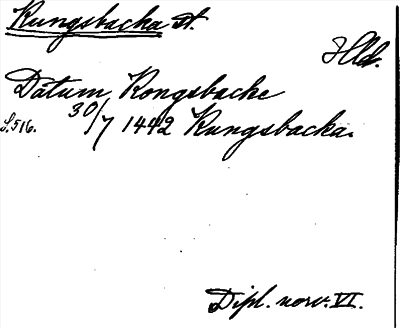 Kungsbacka st.
Hld.
Datum Kongsbacke
S. 516. 30/7 1442 Kungsbacka.
Dipl. norv. VI.